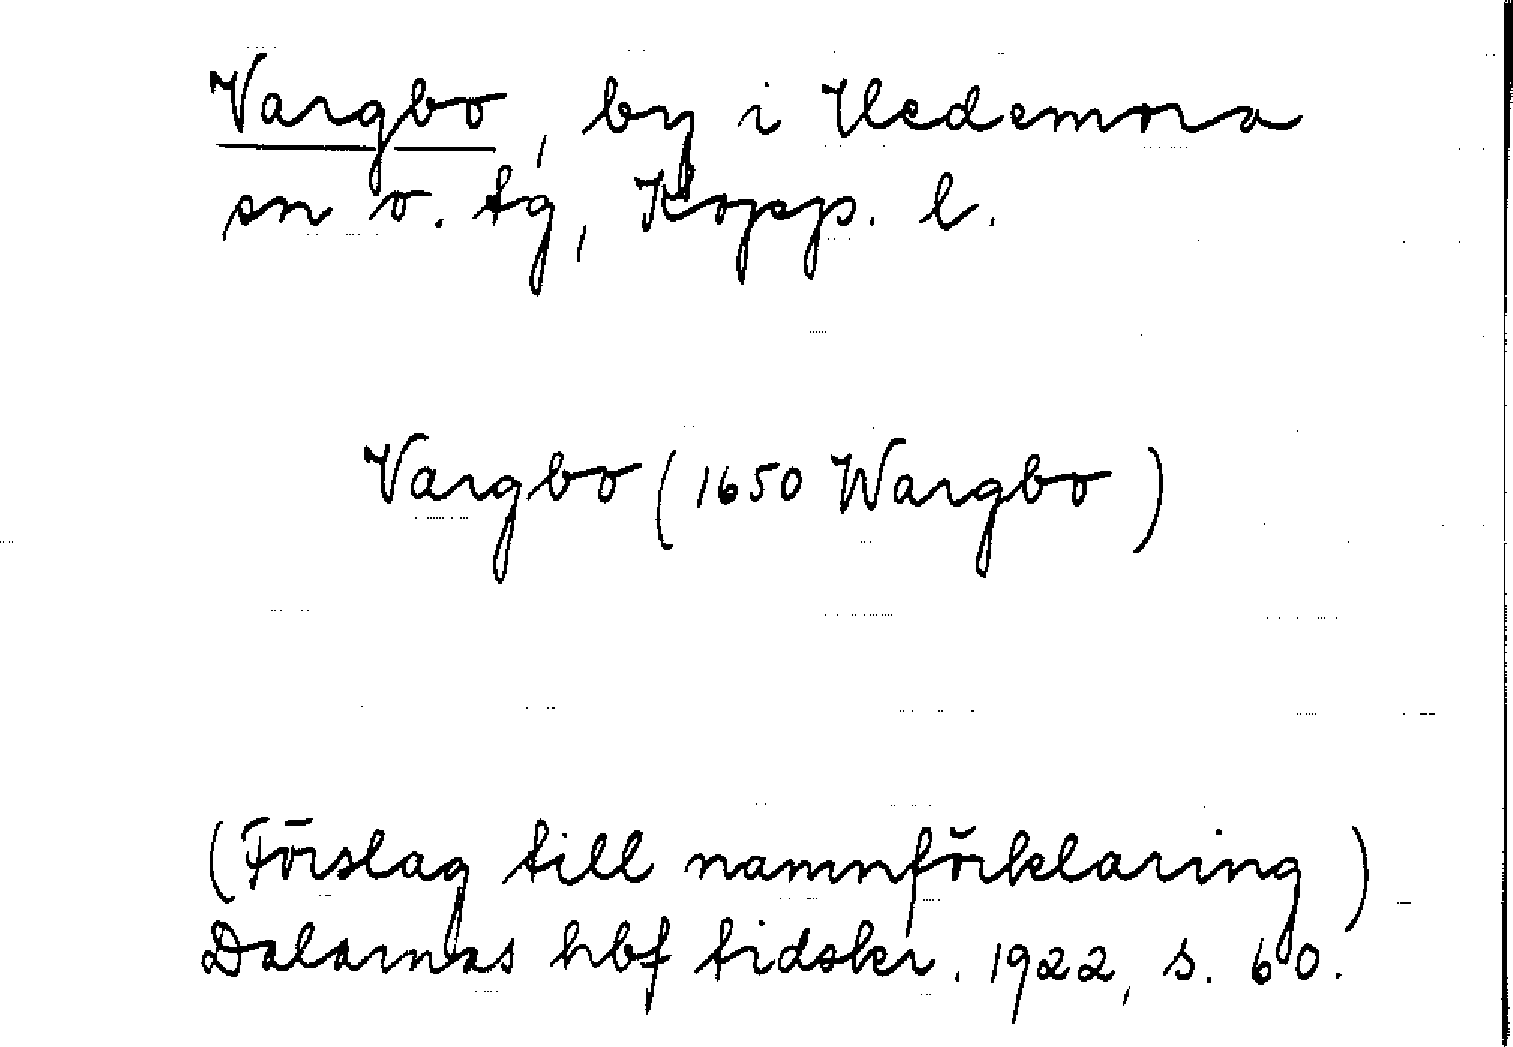 Vargbo, by i Hedemora
sn o. tg, Kopp. l.
Vargbo (1650 Wargbo)
(Förslag till namnförklaring)
Dalarnas hbf tidskr. 1922, s. 60.